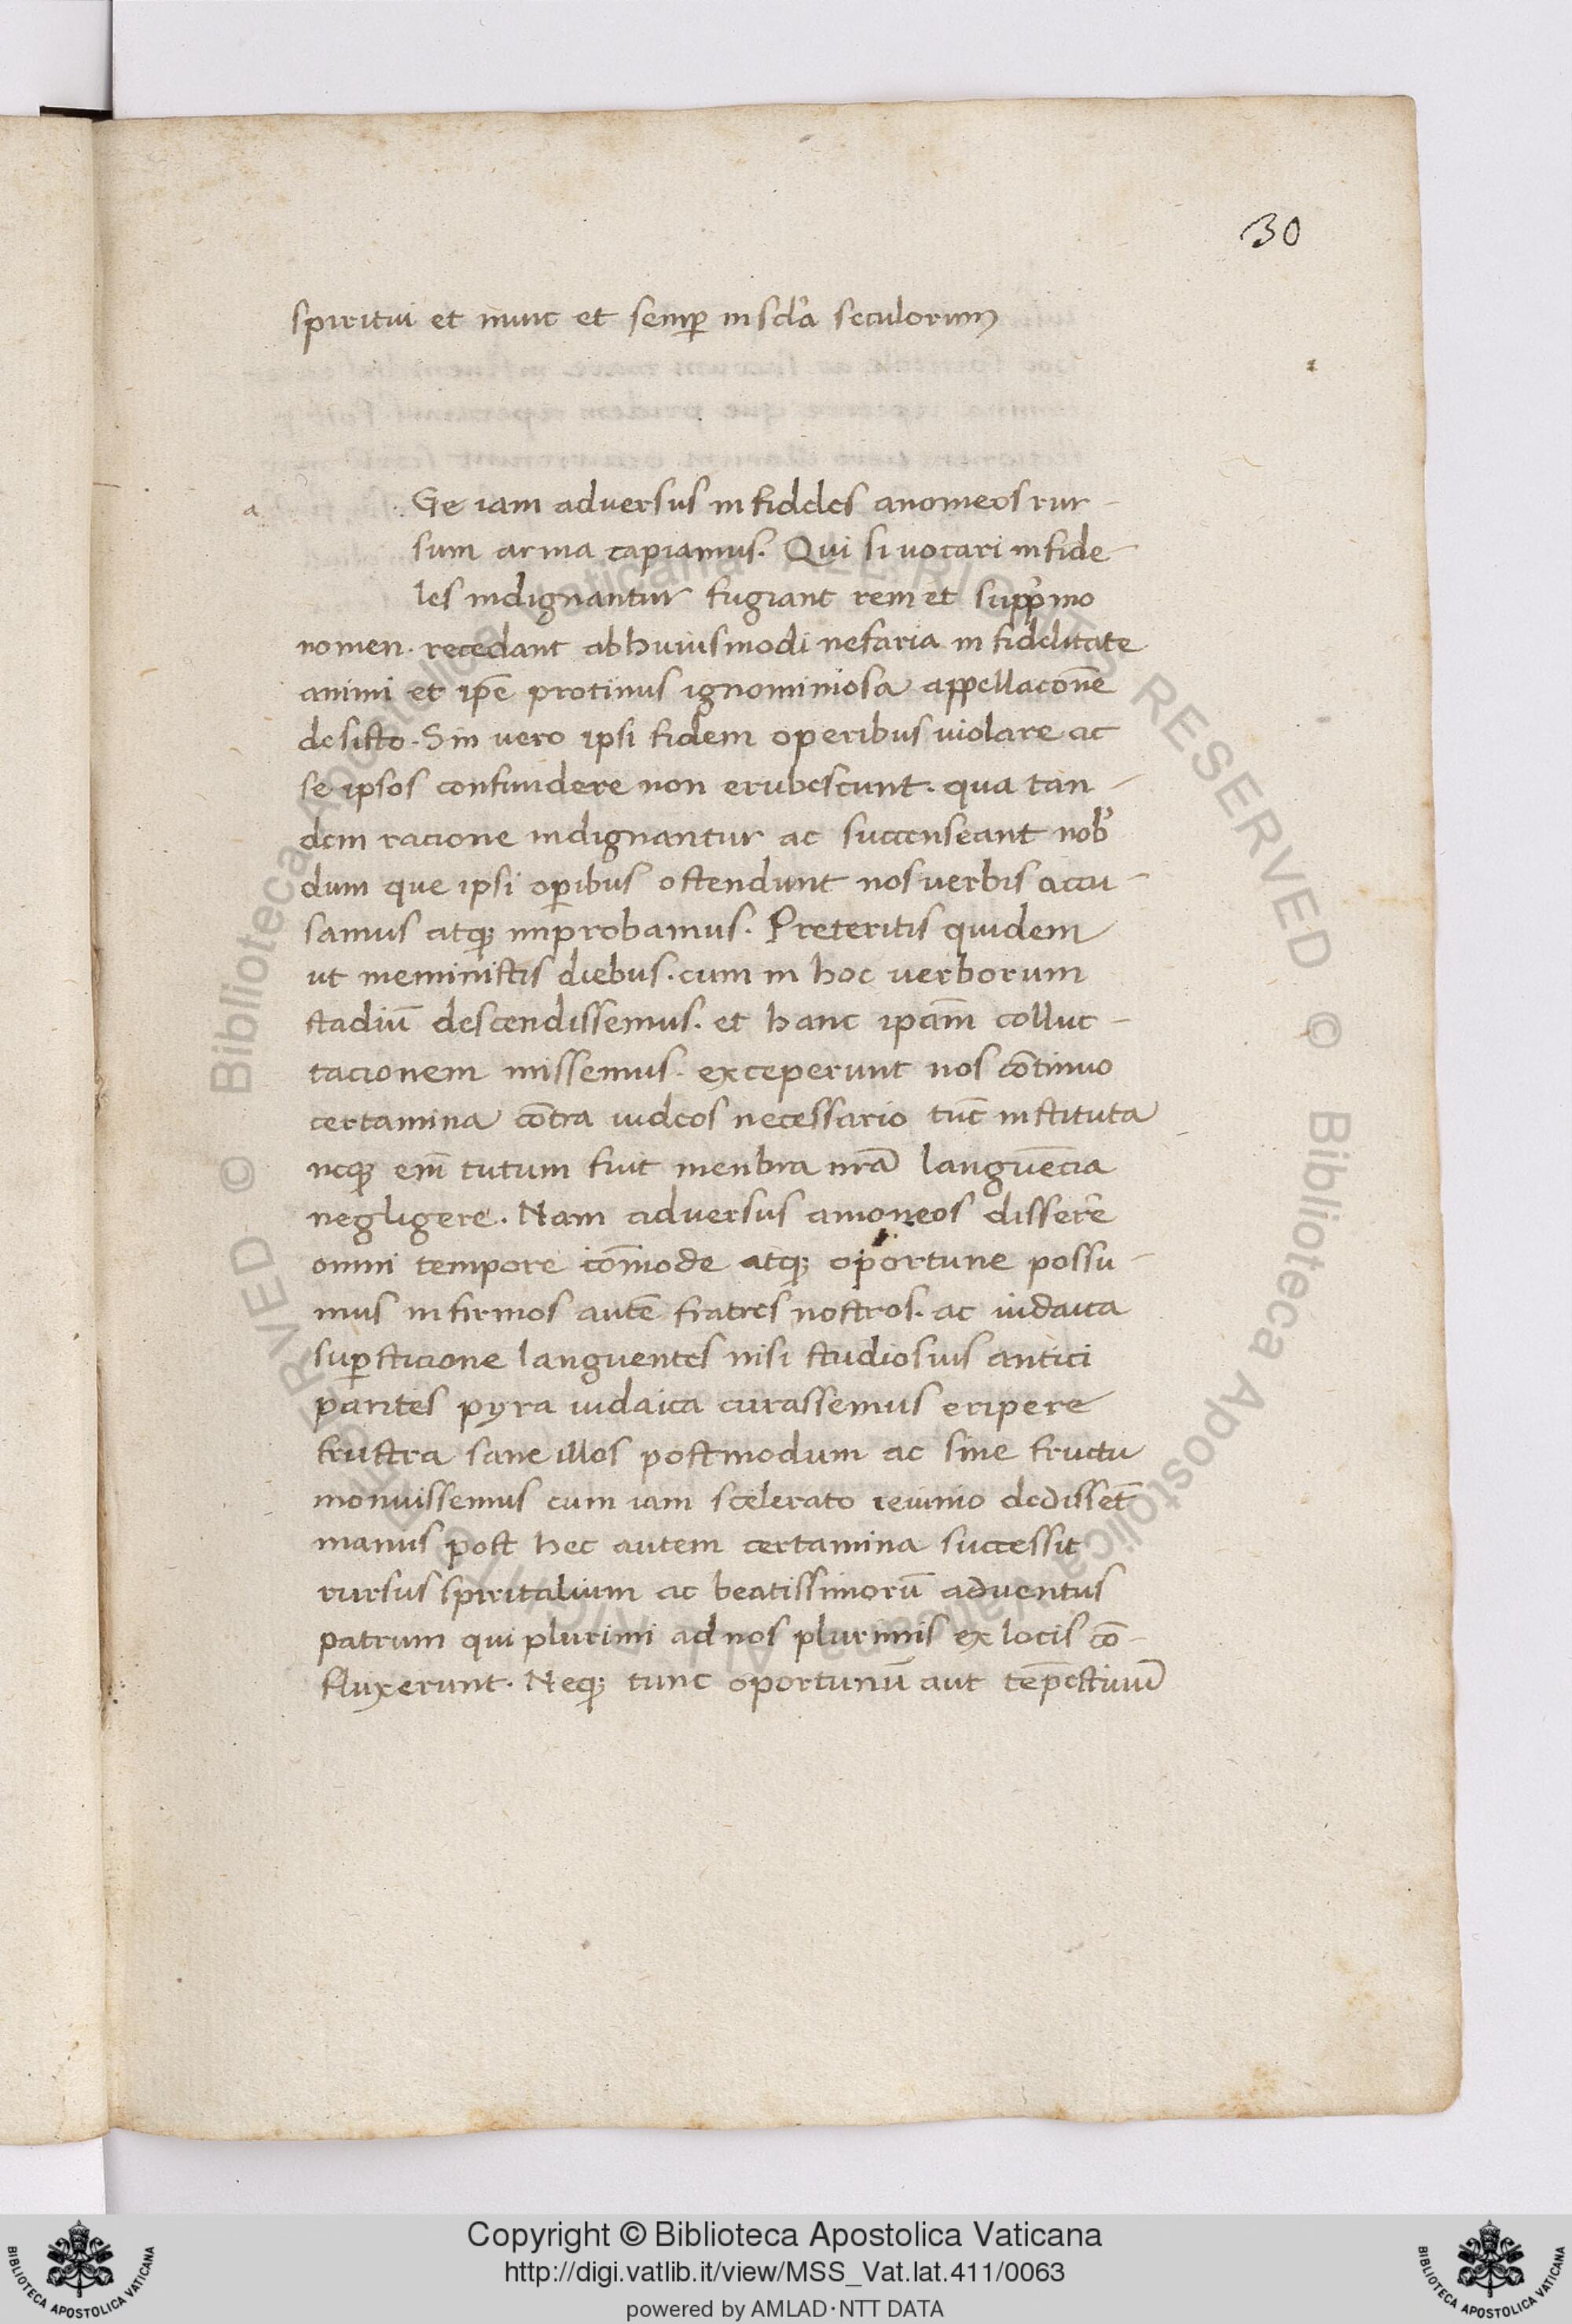 30
spiritui et nunc et semꝑ in scl'a seculorum
a
Ge iam adversus infideles anomeos rur-
sum arma capiamus. Qui si vocari infide-
les indignantur fugiant rem et supp̾mo
nomen. recedant ab huiusmodi nefaria infidelitate
animi et ip̄e protinus ignominiosa appellacōne
desisto. Sin vero ipsi fidem operibus uiolare ac
se ipsos confundere non erubescunt. qua tan-
dem racione indignantur ac succenseant nob̾
dum que ipsi oꝑibus ostendunt nos verbis accu-
samus atqꝫ improbamus. Preteritis quidem
ut meministis diebus. cum in hoc verborum
stadiū descendissemus. et hanc ip̄am colluc-
tacionem missemus. exceperunt nos cōtinuo
certamina cōtra iudeos necessario tūc instituta
neqꝫ em̄ tutum fuit menbra nr̄a languēcia
negligere. Nam adversus amoneos disser̾e
omni tempore cōmode atqꝫ oportune possu-
mus infirmos autē fratres nostros. ac iudaica
suꝑsticione languentes nisi studiosius antici
pantes pyra iudaica curassemus eripere
frustra sane illos postmodum ac sine fructu
monuissemus cum iam scelerato ieiunio dedissēt
manus post hec autem certamina successit
rursus spiritalium ac beatissimorū adventus
patrum qui plurimi ad nos plurimis ex locis cō-
fluxerunt. Neqꝫ tunc oportunū aut tēpestiuū
Copyright © Biblioteca Apostolica Vaticana
http://digi.vatlib.it/view/MSS_Vat.lat.411/0063
powered by AMLAD·NTT DATA